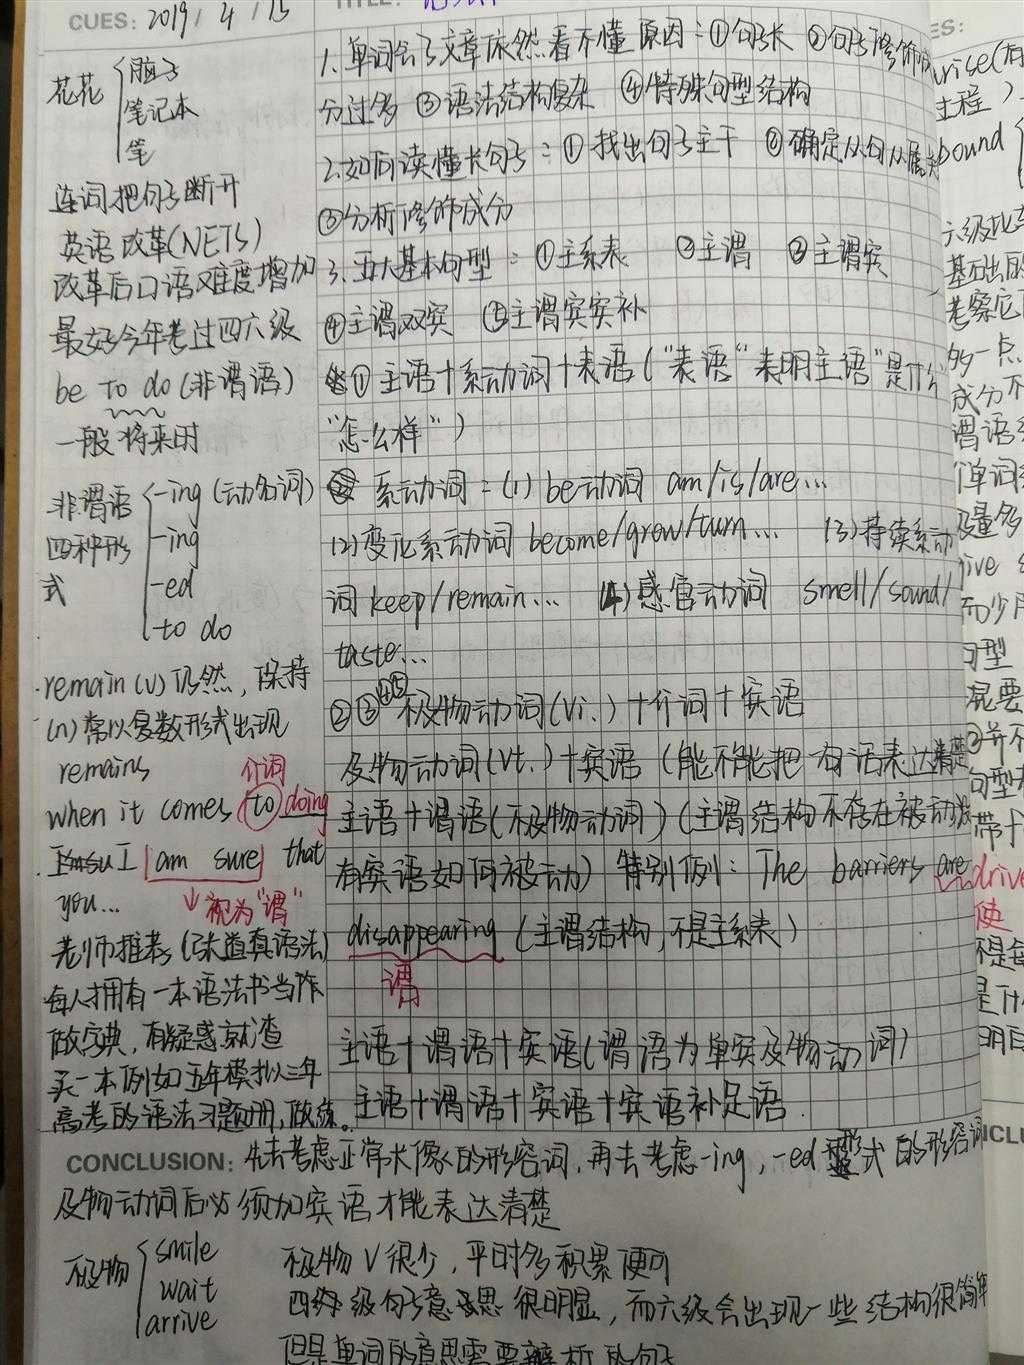 CUES: 2019/4/15
TITLE:
花花
脑子
笔记本
笔
连词把句子断开
英语改革(NETS)
改革后口语难度增加
最好今年考过四六级
be to do (非谓语)
一般将来时
非谓语
四种形
式
-ing (动名词)
-ing
-ed
to do
remain (v) 仍然，保持
(n) 常以复数形式出现
remains
介词
when it comes to doing
I am sure that
you...
↓视为"谓"
老师推荐(味道真语法)
每人拥有一本语法书当作
做字典，有疑惑就查
买一本例如五年模拟三年
高考的语法习题册，做练。
1.单词会了文章依然看不懂 原因：①句子长 ②句子修饰成
分过多 ③语法结构复杂 ④特殊句型结构
2.如何读懂长句子：①找出句子主干 ②确定从句从属关
③分析修饰成分
3.五大基本句型：①主系表 ②主谓 ③主谓宾
④主谓双宾 ⑤主谓宾宾补
① 主语+系动词+表语("表语"表明主语"是什么
"怎么样")
系动词：(1) be动词 am/is/are...
(2)变化系动词 become/grow/turn... (3)持续系动
词 keep/remain... (4)感官动词 smell/sound/
taste...
②③④⑤不及物动词(vi.)+介词+宾语
及物动词(vt.)+宾语 (能不能把一句话表达清楚
主语+谓语(不及物动词)(主谓结构不存在被动
有宾语如何被动) 特别例：The barriers are
disappearing (主谓结构，不是主系表)
谓
主语+谓语+宾语(谓语为单宾及物动词)
主语+谓语+宾语+宾语补足语
CONCLUSION: 先去考虑正常长像的形容词，再去考虑-ing，-ed形式的形容词
及物动词后必须加宾语才能表达清楚
不及物
smile
wait
arrive
不及物v很少，平时多积累便可
四级句子意思很明显，而六级会出现一些结构很简单
但是单词的意思需要辨析的句子
ES:
bound
六级比
基础
考察它
多一点
成分不
谓语
单词
量多
give
而少
句型
混要
句型
带
drive
使
不是
是什
明